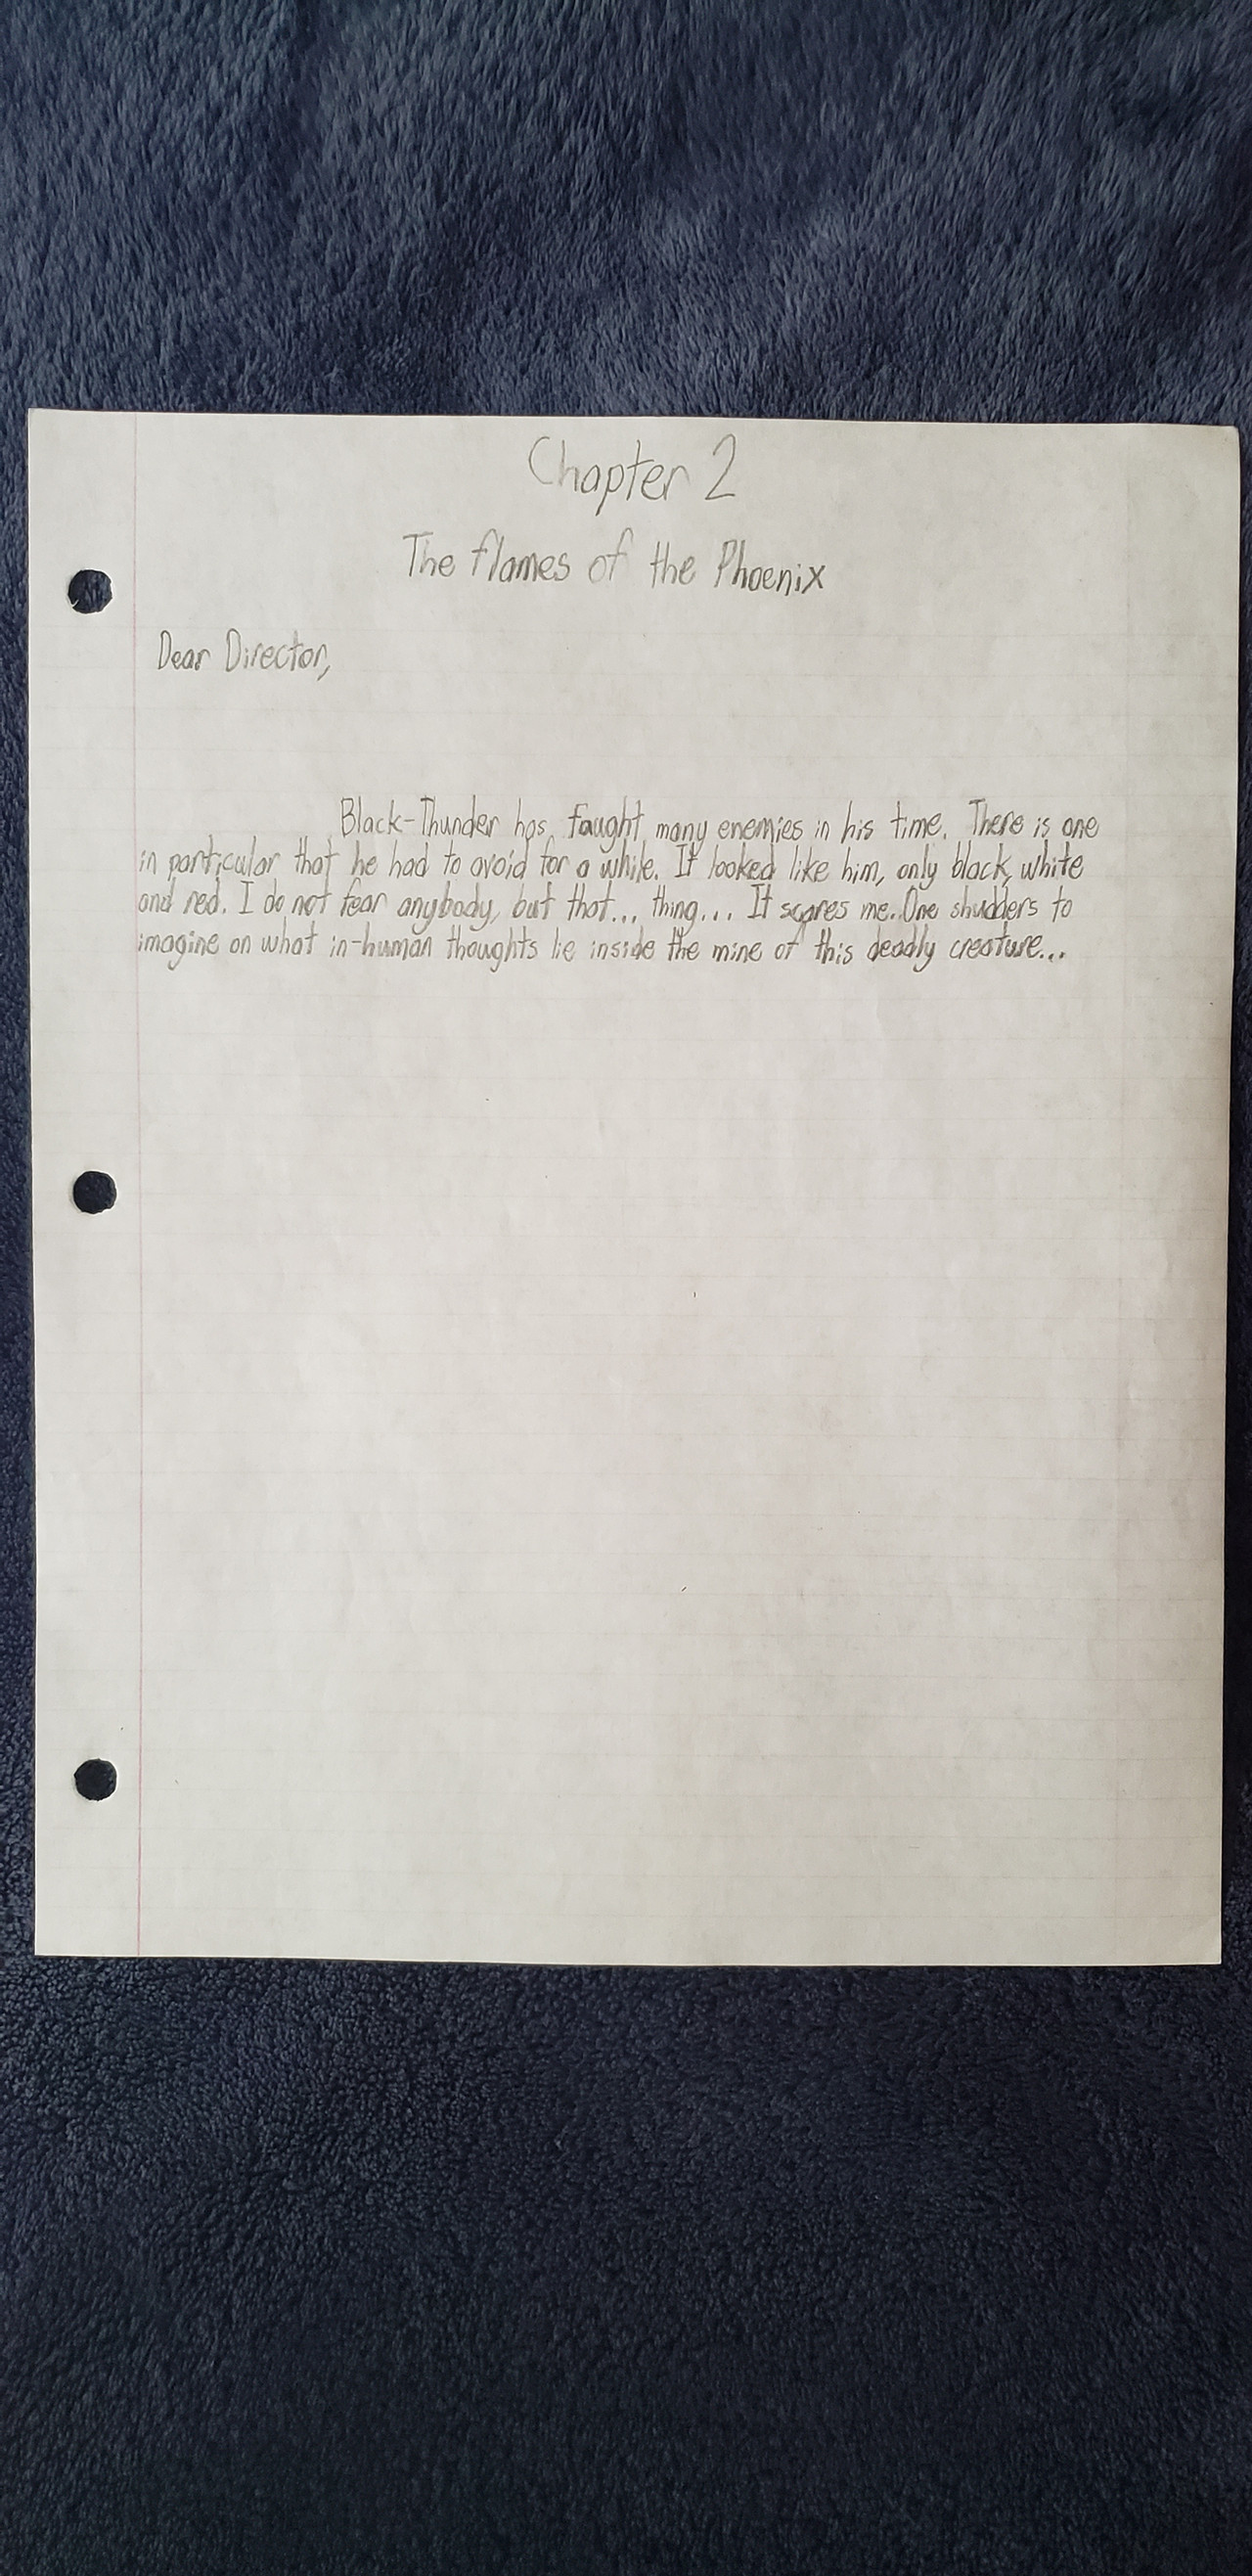 Chapter 2
The flames of the Phoenix
Dear Director,
Black-Thunder has faught many enemies in his time. There is one
in particular that he had to avoid for a while. It looked like him, only black, white
and red. I do not fear anybody, but that... thing... It scares me..One shudders to
imagine on what in-human thoughts lie inside the mine of this deadly creature...